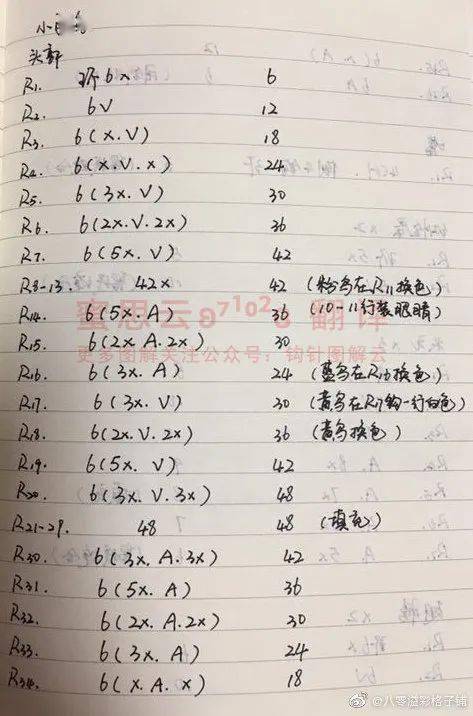 头部
R1. 环6x 6
R2. 6V 12
R3. 6(x.V) 18
R4. 6(x.V.x) 24
R5. 6(3x.V) 30
R6. 6(2x.V.2x) 36
R7. 6(5x.V) 42
R8-13. 42x 42 (粉鸟在R11换色)
R14. 6(5x.A) 36 (10-11行装眼睛)
蜜思云 翻译
R15. 6(2x.A.2x) 30
更多图解关注公众号：钩针图解云
R16. 6(3x.A) 24 (蓝鸟在R16换色)
R17. 6(3x.V) 30 (黄鸟在R17钩一行白色)
R18. 6(2x.V.2x) 36 (黄鸟换色)
R19. 6(5x.V) 42
R20. 6(3x.V.3x) 48
R21-29. 48 48 (填充)
R30. 6(3x.A.3x) 42
R31. 6(5x.A) 36
R32. 6(2x.A.2x) 30
R33. 6(3x.A) 24
R34. 6(x.A.x) 18
@八零溢彩格子铺